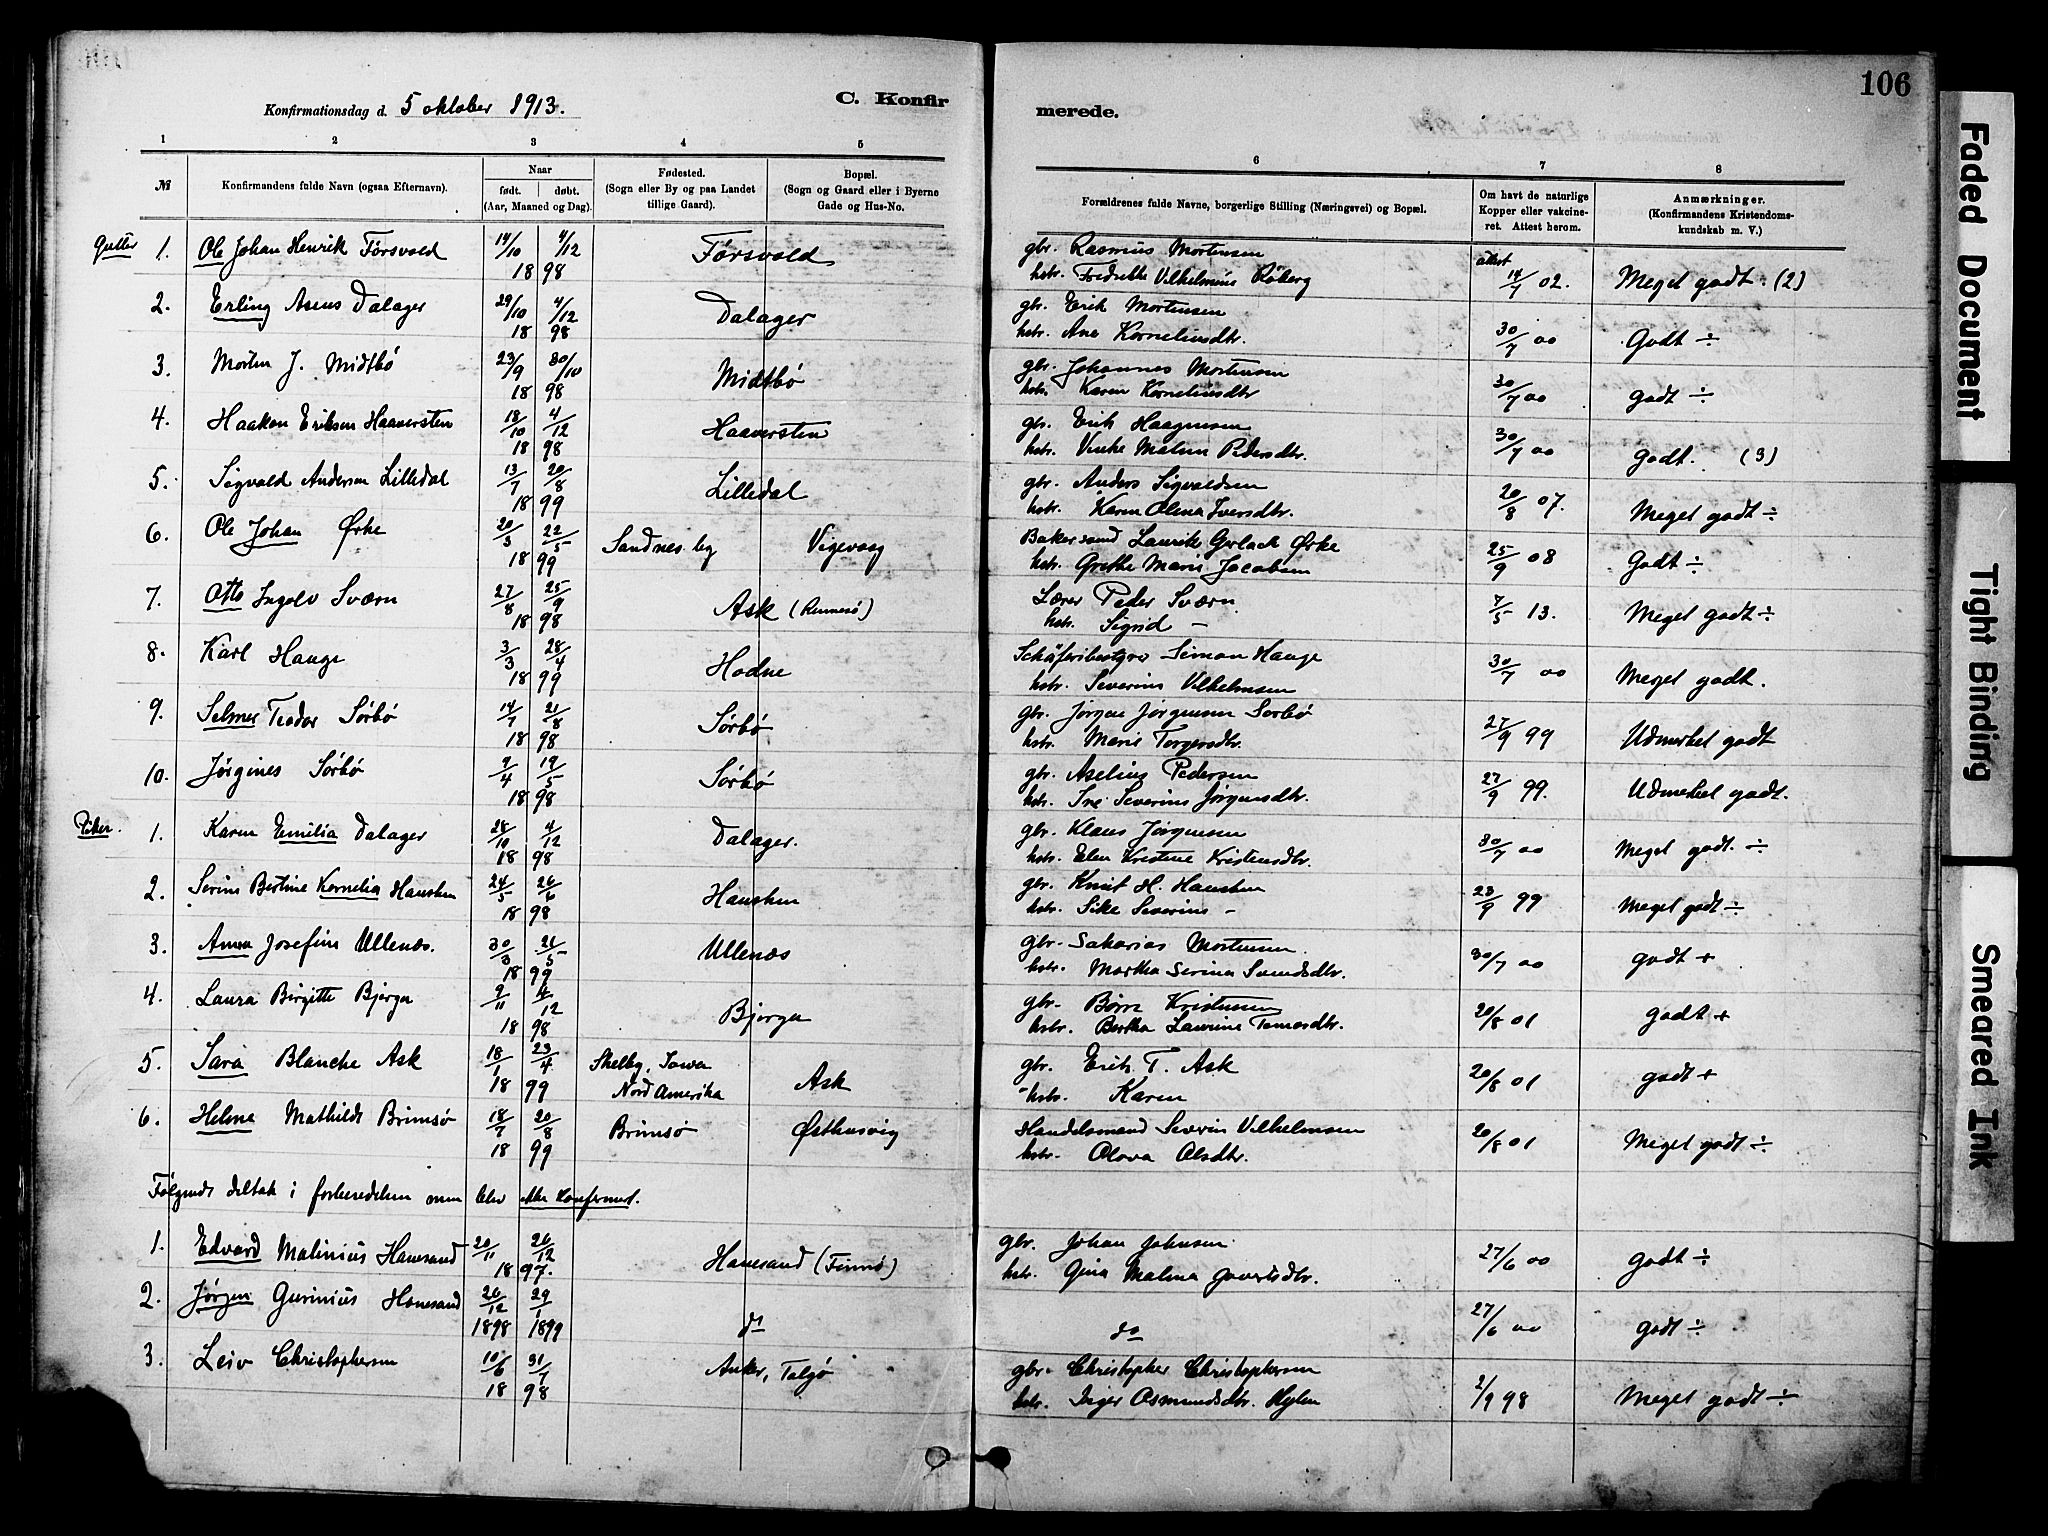 106
Konfirmationsdag d. 5 oktober 1913.
C. Konfirmerede.
1 2 3 4 5 6 7 8
№
Konfirmandens fulde Navn (ogsaa Efternavn).
Naar
født. døbt.
(Aar, Maaned og Dag).
Fødested.
(Sogn eller By og paa Landet
tillige Gaard).
Bopæl.
(Sogn og Gaard eller i Byerne
Gade og Hus-No.
Forældrenes fulde Navne, borgerlige Stilling (Næringsvei) og Bopæl.
Om havt de naturlige
Kopper eller vakcine-
ret. Attest herom.
Anmærkninger.
(Konfirmandens Kristendoms-
kundskab m. V.)
Gutter 1. Ole Johan Henrik Førsvold 14/10 4/12 Førsvold gbr. Rasmus Mortensen attest
18 98 hstr. Fredrikke Vilhelmine 14/7 02. Meget godt. (2)
2. Erling Aseus Dalager 29/10 4/12 Dalager gbr. Erik Mortensen
18 98 hstr. Ane Korneliusdtr. 30/7 00 Godt ÷
3. Morten J. Midtbø 23/9 30/10 Midtbø gbr. Johannes Mortensen
18 98 hstr. Karen Korneliusdtr 30/7 00 godt ÷
4. Haakon Eriksen Haaversten 18/10 4/12 Haaversten gbr. Erik Haagensen
18 98 hstr. Vinke Malene Pedersdtr. 30/7 00 godt. (3)
5. Sigvald Andersen Lilledal 13/7 20/8 Lilledal gbr. Anders Sigvaldsen
18 99 hstr. Karen Olena Iversdtr. 20/8 07. Meget godt ÷
6. Ole Johan Ørke 20/3 22/5 Sandnes by Vigevaag Bakersvend Laurik Gerlach Ørke
18 99 hstr. Grethe Marie Jacobsen 25/9 08 Godt ÷
7. Otto Ingolv Sværn 27/8 25/9 Ask (Rennesø) Lærer Peder Sværn
18 98 hstr. Sigrid – 7/5 13. Meget godt ÷
8. Karl Hauge 3/3 28/4 Hodne Schäferibestyrer Simon Hauge
18 99 hstr. Severine Vilhelmsen 30/7 00 Meget godt.
9. Selmer Teodor Sørbø 14/7 21/8 Sørbø gbr. Jørgen Jørgensen Sørbø
18 98 hstr. Marie Torgersdtr. 27/9 99 Udmerket godt
10. Jørgines Sørbø 9/4 19/5 Sørbø gbr. Aselius Pedersen
18 98 hstr. Ine Severine Jørgensdtr. 27/9 99. Udmerket godt.
Piker. 1. Karen Emilia Dalager 28/10 4/12 Dalager. gbr. Klaus Jørgensen
18 98 hstr. Elen Kristine Kristensdtr. 30/7 00 Meget godt. ÷
2. Serine Bertine Kornelia Hausken 24/5 26/6 Hausken gbr. Knut H. Hausken
18 98 hstr. Sike Severine – 23/9 99 Meget godt ÷
3. Anna Josefine Ullenæs. 30/3 21/5 Ullenæs gbr. Sakarias Mortensen
18 99 hstr. Martha Serina Svendsdtr. 30/7 00 godt +
4. Laura Birgitte Bjerga 9/11 4/12 Bjerga gbr. Børre Kristensen
18 98 hstr. Bertha Laurine Tomasdtr. 20/8 01 godt +
5. Sara Blanche Ask 18/1 23/4 Shelby, Iowa Ask gbr. Erik T. Ask
18 99 Nord Amerika hstr. Karen 20/8 01 godt +
6. Helene Mathilde Brimsø 18/7 20/8 Brimsø Østhusvig Handelsmand Severin Vilhelmsen
18 99 hstr. Olova Olsdtr. 20/8 01 Meget godt ÷
Følgende deltok i forberedelsen men blev ikke konfirmert.
1. Edvard Malinius Hanesand 20/11 26/12 Hanesand (Finnø) gbr. Johan Johnsen
18 97. hstr. Gina Malena Govertsdtr. 27/6 00 godt ÷
2. Jørgen Gurinius Hanesand 26/12 29/1
1898 1899 do do 27/6 00 godt ÷
3. Leiv Christophersen 10/6 31/7 Anker, Talgø gbr. Christopher Christophersen
18 98 hstr. Inger Osmundsdtr. 2/9 98 Meget godt ÷
Faded Document
Tight Binding
Smeared Ink